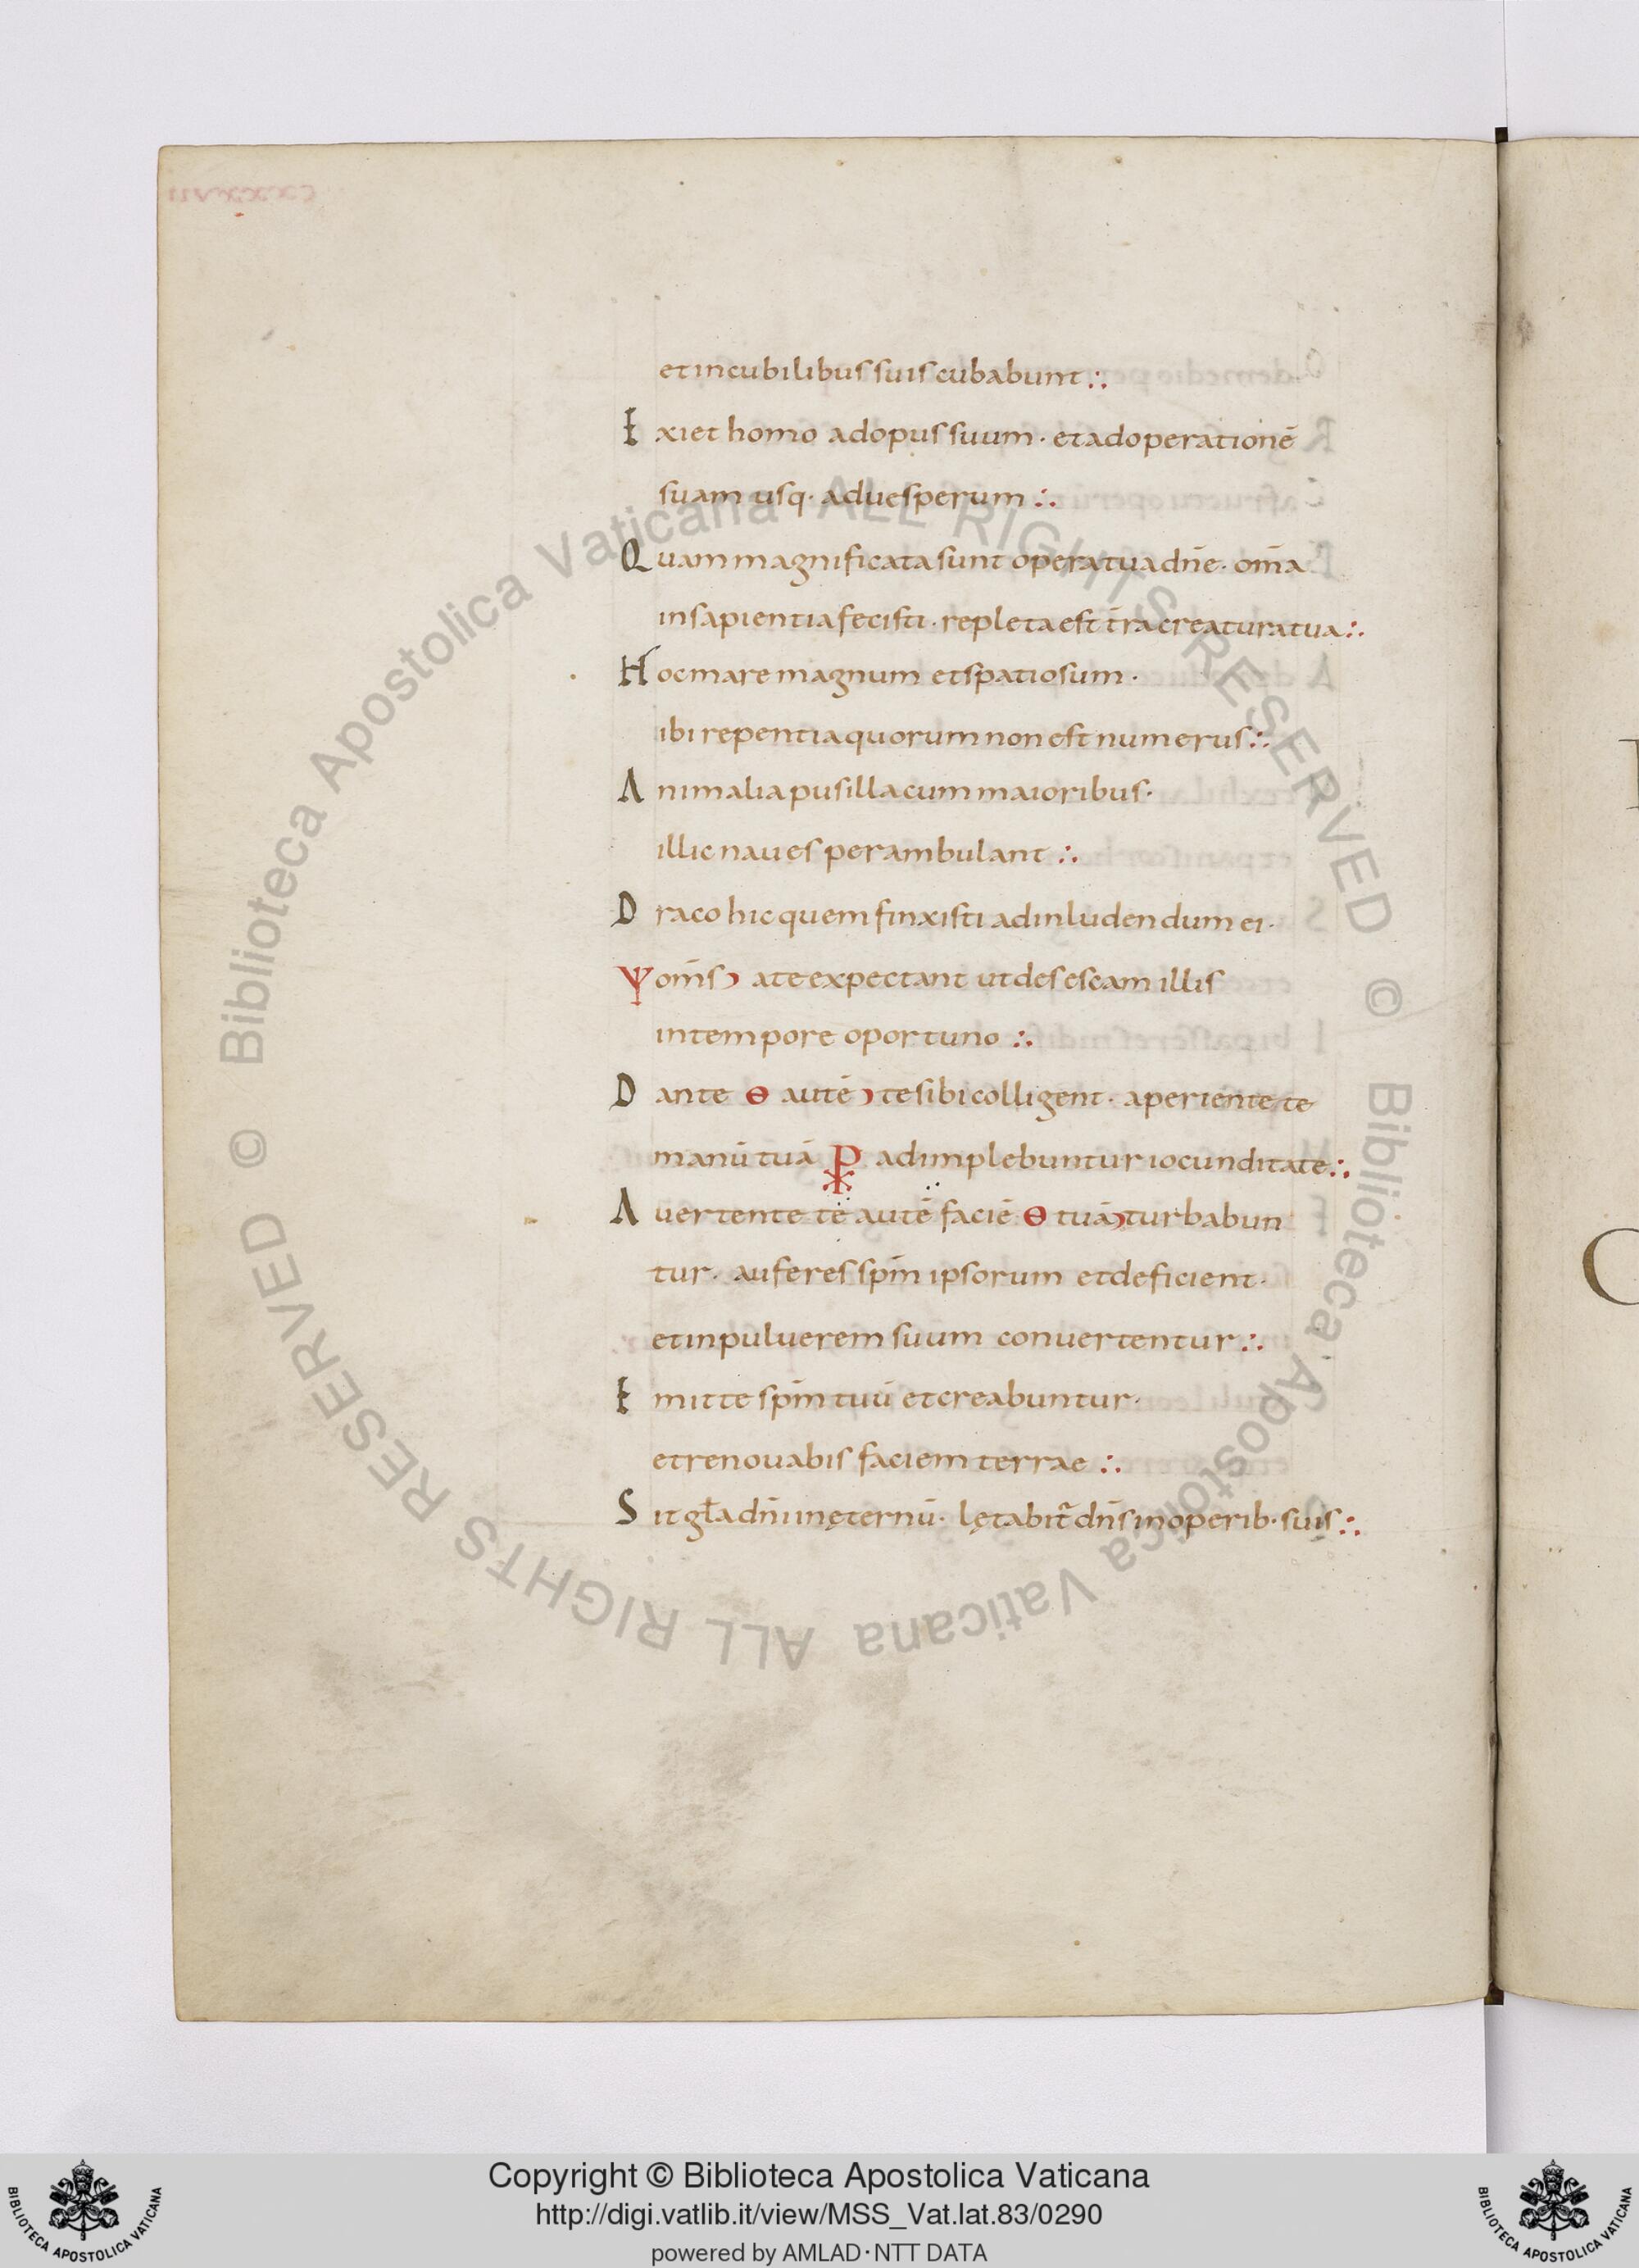 et in cubilibus suis cubabunt :.
Exiet homo ad opus suum · et ad operationē
suam usq· ad uesperum :.
Quam magnificata sunt opera tua dn̄e · om̄a
in sapientia fecisti · repleta est t̄ra creatura tua :.
Hoc mare magnum et spatiosum ·
ibi repentia quorum non est numerus :.
Animalia pusilla cum maioribus ·
illic naues perambulant :.
Draco hic quem finxisti ad inludendum ei ·
Ѱ om̄s ) a te expectant ut des escam illis
in tempore oportuno :.
Dante ɵ autē ) te sibi colligent · aperiente te
manū tuā ⳩ adimplebuntur iocunditate :.
Auertente te autē faciē ɵ tuā ) turbabun
tur · auferes sp̄m ipsorum et deficient ·
et in puluerem suum conuertentur :.
Emitte sp̄m tuū et creabuntur ·
et renouabis faciem terrae :.
Sit gl̄a dn̄i in ęternū · lętabit̄ dn̄s in operib· suis :.
© Biblioteca Apostolica Vaticana ALL RIGHTS RESERVED © Biblioteca Apostolica Vaticana ALL RIGHTS RESERVED
Copyright © Biblioteca Apostolica Vaticana
http://digi.vatlib.it/view/MSS_Vat.lat.83/0290
powered by AMLAD·NTT DATA
BIBLIOTECA APOSTOLICA VATICANA
BIBLIOTECA APOSTOLICA VATICANA